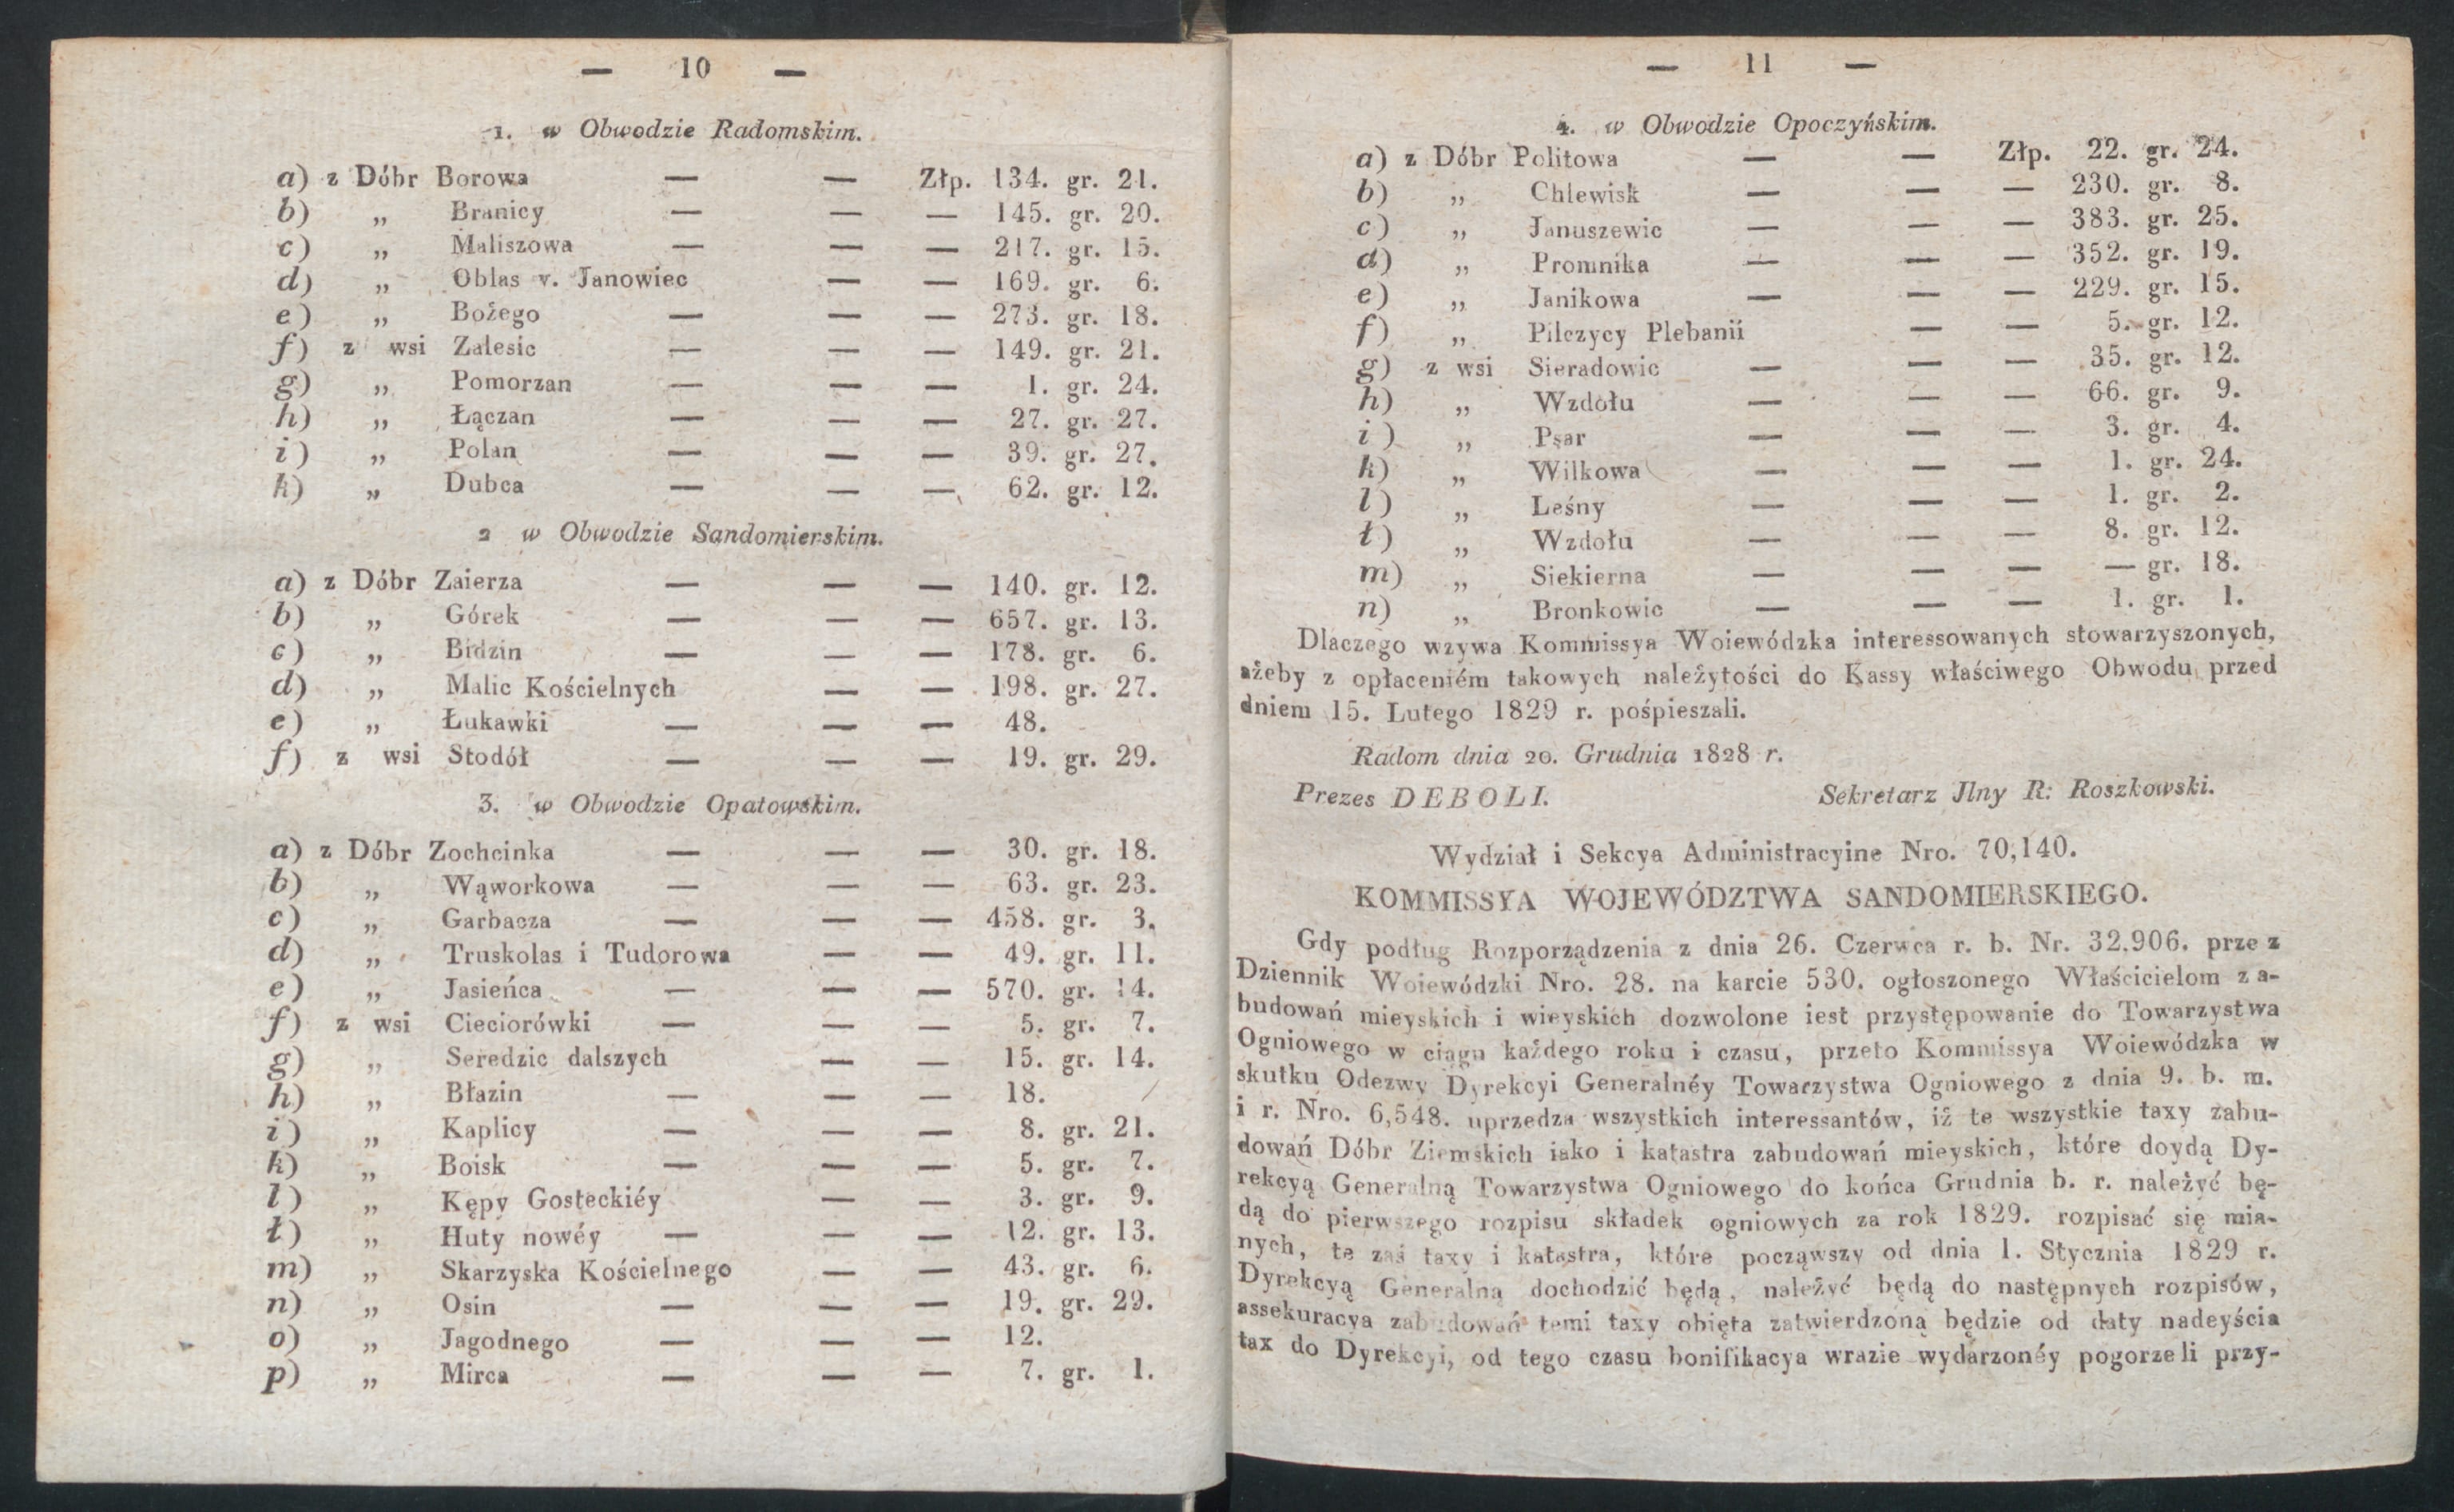 — 10 —
1. w Obwodzie Radomskim.
a) z Dóbr Borowa — — Złp. 134. gr. 21.
b) „ Branicy — — — 145. gr. 20.
c) „ Maliszowa — — — 217. gr. 15.
d) „ Oblas v. Janowiec — — 169. gr. 6.
e) „ Bożego — — — 273. gr. 18.
f) z wsi Zalesic — — — 149. gr. 21.
g) „ Pomorzan — — — 1. gr. 24.
h) „ Łączan — — — 27. gr. 27.
i) „ Polan — — — 39. gr. 27.
k) „ Dubca — — — 62. gr. 12.
2 w Obwodzie Sandomierskim.
a) z Dóbr Zaierza — — — 140. gr. 12.
b) „ Górek — — — 657. gr. 13.
c) „ Bidzin — — — 178. gr. 6.
d) „ Malic Kościelnych — — 198. gr. 27.
e) „ Łukawki — — — 48.
f) z wsi Stodół — — — 19. gr. 29.
3. w Obwodzie Opatowskim.
a) z Dóbr Zochcinka — — — 30. gr. 18.
b) „ Wąworkowa — — — 63. gr. 23.
c) „ Garbacza — — — 458. gr. 3.
d) „ Truskolas i Tudorowa — — 49. gr. 11.
e) „ Jasieńca — — — 570. gr. 14.
f) z wsi Cieciorówki — — — 5. gr. 7.
g) „ Seredzic dalszych — — 15. gr. 14.
h) „ Błazin — — — 18.
i) „ Kaplicy — — — 8. gr. 21.
k) „ Boisk — — — 5. gr. 7.
l) „ Kępy Gosteckiéy — — 3. gr. 9.
ł) „ Huty nowéy — — — 12. gr. 13.
m) „ Skarzyska Kościelnego — — 43. gr. 6.
n) „ Osin — — — 19. gr. 29.
o) „ Jagodnego — — — 12.
p) „ Mirca — — — 7. gr. 1.
— 11 —
4. w Obwodzie Opoczyńskim.
a) z Dóbr Politowa — — Złp. 22. gr. 24.
b) „ Chlewisk — — — 230. gr. 8.
c) „ Januszewic — — — 383. gr. 25.
d) „ Promnika — — — 352. gr. 19.
e) „ Janikowa — — — 229. gr. 15.
f) „ Pilczycy Plebanii — — 5. gr. 12.
g) z wsi Sieradowic — — — 35. gr. 12.
h) „ Wzdołu — — — 66. gr. 9.
i) „ Psar — — — 3. gr. 4.
k) „ Wilkowa — — — 1. gr. 24.
l) „ Leśny — — — 1. gr. 2.
ł) „ Wzdołu — — — 8. gr. 12.
m) „ Siekierna — — — — gr. 18.
n) „ Bronkowic — — — 1. gr. 1.
Dlaczego wzywa Kommissya Woiewódzka interessowanych stowarzyszonych,
ażeby z opłaceniém takowych należytości do Kassy właściwego Obwodu przed
dniem 15. Lutego 1829 r. pośpieszali.
Radom dnia 20. Grudnia 1828 r.
Prezes DEBOLI. Sekretarz Jlny R: Roszkowski.
Wydział i Sekcya Administracyine Nro. 70,140.
KOMMISSYA WOJEWÓDZTWA SANDOMIERSKIEGO.
Gdy podług Rozporządzenia z dnia 26. Czerwca r. b. Nr. 32.906. przez
Dziennik Woiewódzki Nro. 28. na karcie 530. ogłoszonego Właścicielom za-
budowań mieyskich i wieyskich dozwolone iest przystępowanie do Towarzystwa
Ogniowego w ciągu każdego roku i czasu, przeto Kommissya Woiewódzka w
skutku Odezwy Dyrekcyi Generalnéy Towarzystwa Ogniowego z dnia 9. b. m.
i r. Nro. 6,548. uprzedza wszystkich interessantów, iż te wszystkie taxy zabu-
dowań Dóbr Ziemskich iako i katastra zabudowań mieyskich, które doydą Dy-
rekcyą Generalną Towarzystwa Ogniowego do końca Grudnia b. r. należyć bę-
dą do pierwszego rozpisu składek ogniowych za rok 1829. rozpisać się mia-
nych, te zaś taxy i katastra, które począwszy od dnia 1. Stycznia 1829 r.
Dyrekcyą Generalną dochodzić będą, należyć będą do następnych rozpisów,
assekuracya zabudowań temi taxy obięta zatwierdzoną będzie od daty nadeyścia
tax do Dyrekcyi, od tego czasu bonifikacya wrazie wydarzonéy pogorzeli przy-